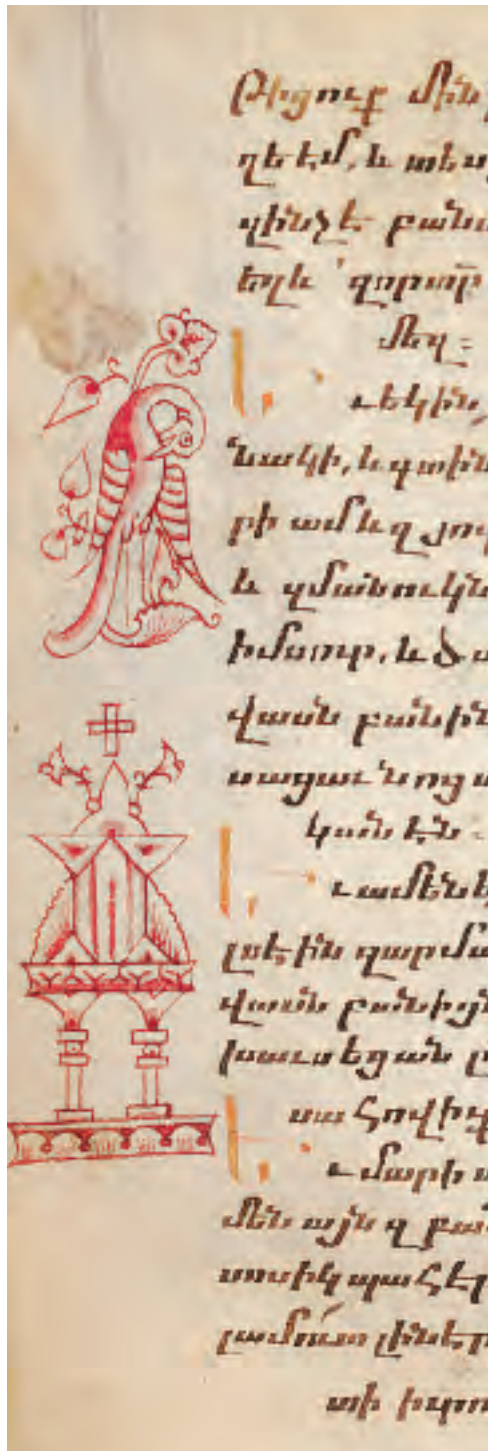 թիցուք մին
ղեեմ, և տես
զինչ է բանս
եղև՝ զորտր
մեզ։
ւեկին,
նակի, և գտին
րի ամ և զ յով
և զմանուկն
իմսուր, և ծ
վասն բանին
սացաւ նոցա
կանէն։
ւամենե
լսէին զարմա
վասն բանիցն
խաւսեցան ը
սա հովիւք
ւմարի ա
մենայն զ բան
սոսիկ պահէր
լամուտ լինէր
տի իւրու